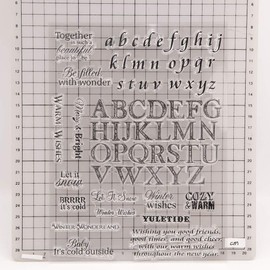 Together
is such a
beautiful
place to be
Be filled
with wonder
abcdefghij
klmnopqr
stuvwxyz
Warm Wishes
Merry & Bright
ABCDEFG
HIJKLMN
OPQRSTU
VWXYZ
Let it
snow
BRRRR
it's cold
Let It Snow
Winter Wishes
Winter
wishes
COZY
& WARM
WINTER WONDERLAND
YULETIDE
Baby
It's cold outside
Wishing you good friends,
good times, and good cheer
with our warm wishes
throughout the new year.
cm